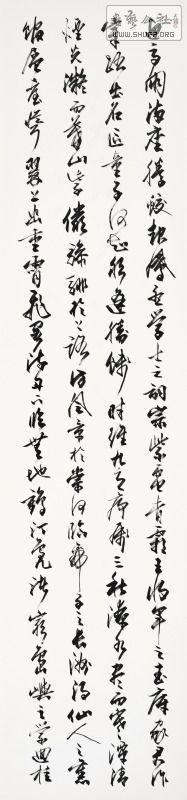 迎高朋滿座騰蛟起鳳孟學士之詞宗紫電青霜王將軍之武庫家君作
宰路出名區童子何知躬逢勝餞時維九月序屬三秋潦水盡而寒潭清
煙光凝而暮山紫儼驂騑於上路訪風景於崇阿臨帝子之長洲得仙人之舊
館層臺聳翠上出重霄飛閣流丹下臨無地鶴汀鳧渚窮島嶼之縈迴桂